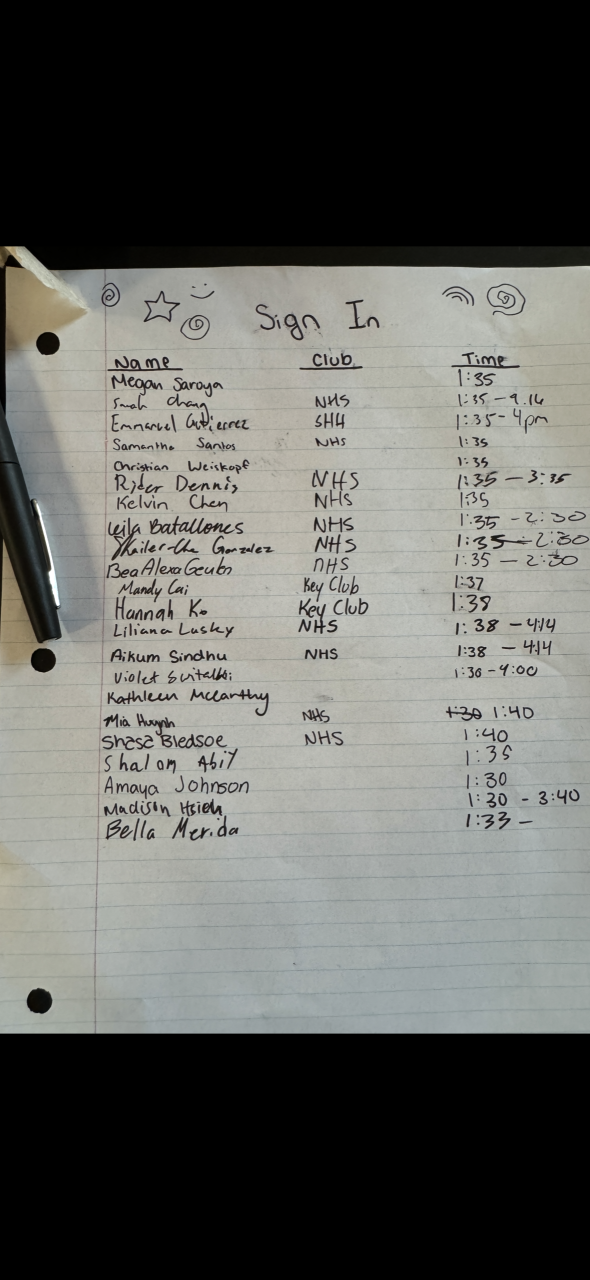 Sign In
Name Club Time
Megan Saroya 1:35
Chang NHS 1:35 - 4.14
Emmanuel Gutierrez SHH 1:35 - 4pm
Samantha Santos NHS 1:35
Christian Weiskopf 1:35
Ryder Dennis NHS 1:35 - 3:35
Kelvin Chen NHS 1:35
Leila Batallones NHS 1:35 - 2:30
Gonzalez NHS 1:35 - 2:30
Bea Alexa NHS 1:35 - 2:30
Mandy Cai Key Club 1:37
Hannah Ko Key Club 1:38
Liliana Lusky NHS 1:38 - 4:14
Aikum Sindhu NHS 1:38 - 4:14
Violet 1:30 - 4:00
Kathleen McCarthy
Mia Huynh NHS 1:30 1:40
Shasa Bledsoe NHS 1:40
Shalom Abiy 1:35
Amaya Johnson 1:30
Madison Hsieh 1:30 - 3:40
Bella Merida 1:33 -